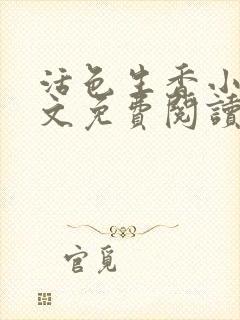 活色生香小
文免費閱讀
官覓